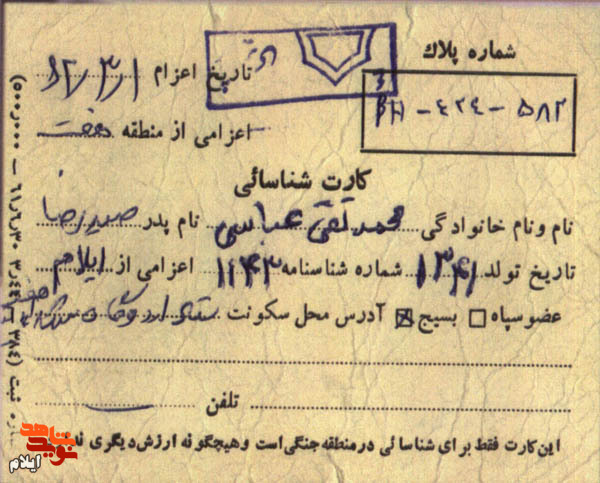 شماره پلاک
BH - ۴۲۴ - ۵۸۲
تاریخ اعزام ۶۲/۳/۱
اعزامی از منطقه هفت
کارت شناسائی
نام ونام خانوادگی محمد تقی عباسی نام پدر صیدرضا
تاریخ تولد ۱۳۴۱ شماره شناسنامه ۱۱۴۳ اعزامی از ایلام
عضو سپاه بسیج آدرس محل سکونت
تلفن
این کارت فقط برای شناسائی در منطقه جنگی است وهیچگونه ارزش دیگری
نوید شاهد
ایلام